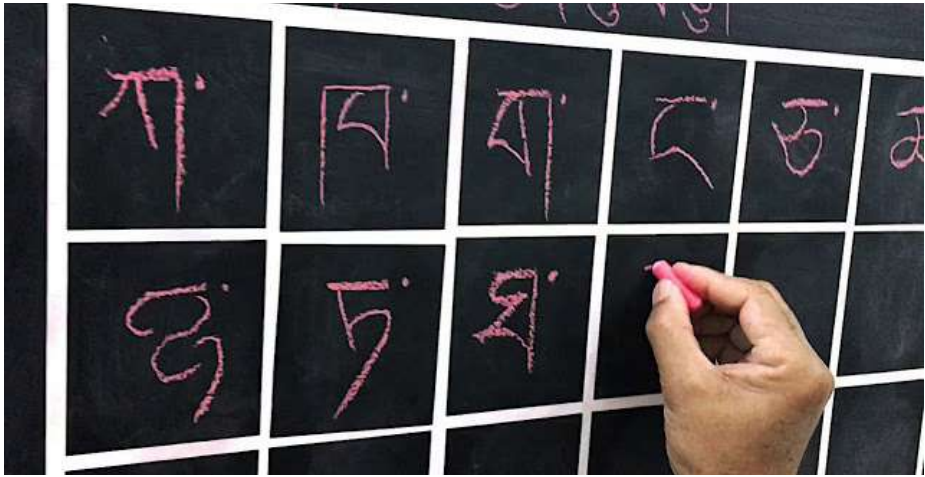 ཀ་ ཁ་ ག་ ང་ ཅ་
ཉ་ ཏ་ ཐ་